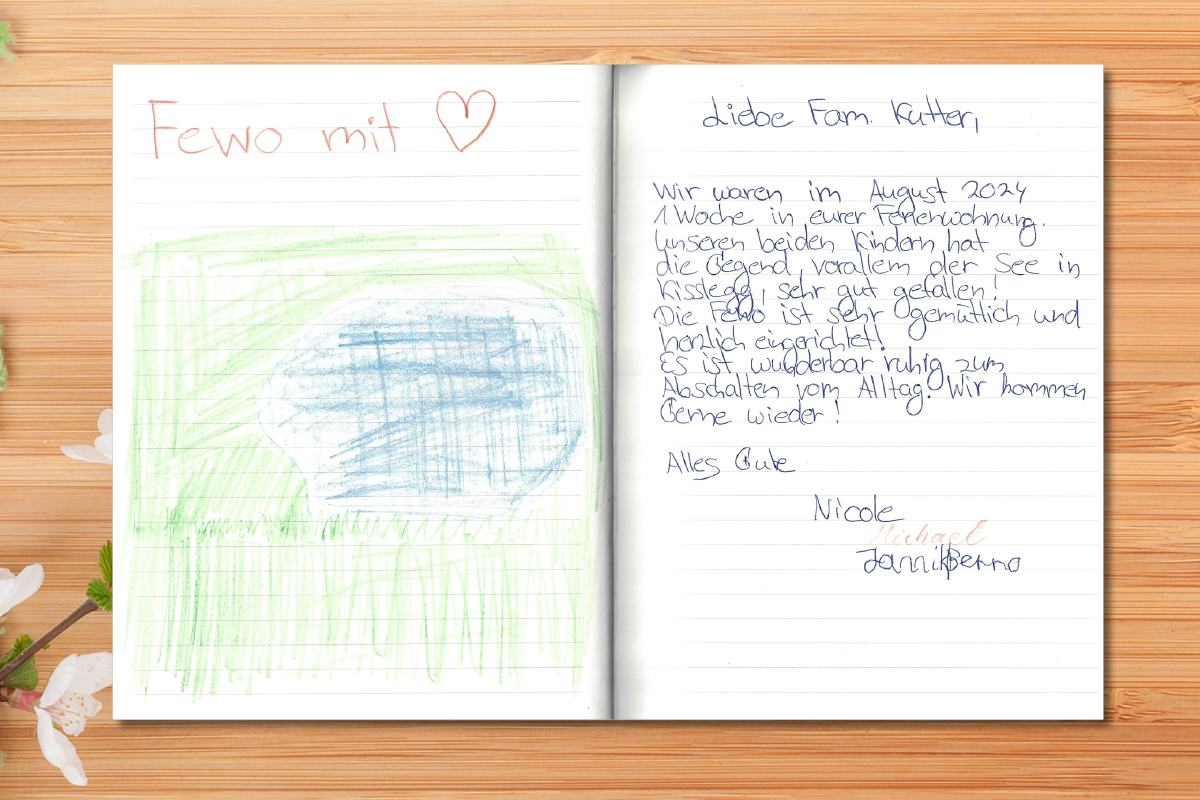 Fewo mit ♡
Liebe Fam. Kutter,
Wir waren im August 2024
1 Woche in eurer Ferienwohnung.
Unseren beiden Kindern hat
die Gegend, vorallem der See in
Kisslegg, sehr gut gefallen!
Die Fewo ist sehr gemütlich und
herzlich eingerichtet!
Es ist wunderbar ruhig zum
Abschalten vom Alltag. Wir kommen
Gerne wieder!
Alles Gute
Nicole
Michael
Jannik Benno